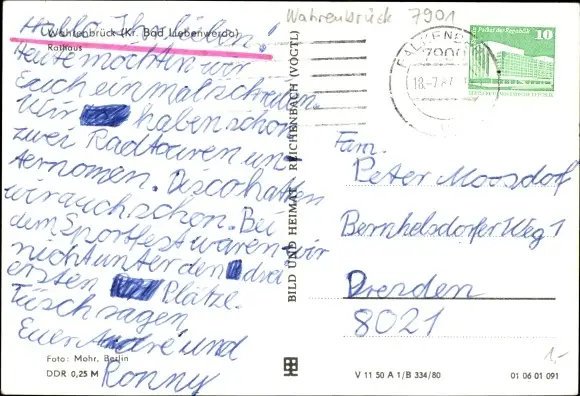 Wahrenbrück 7901
Hallo Ihr lieben!
Wahrenbrück (Kr. Bad Liebenwerda)
Rathaus
Heute möchten wir
Euch einmal schreiben.
Wir haben schon
zwei Radtouren un-
ternomen. Disco hatten
wir auch schon. Bei
dem Sportfest waren wir
nicht unter den drei
ersten Plätze.
Tüsch sagen
Euer André und
Ronny
Foto: Mohr, Berlin
DDR 0,25 M
BILD UND HEIMAT REICHENBACH (VOGTL)
FALKENBE
7900
18.-7.87
Palast der Republik 10
Fam.
Peter Moosdorf
Bernhelsdorfer Weg 1
Dresden
8021
1,-
V 11 50 A 1/B 334/80
01 06 01 091